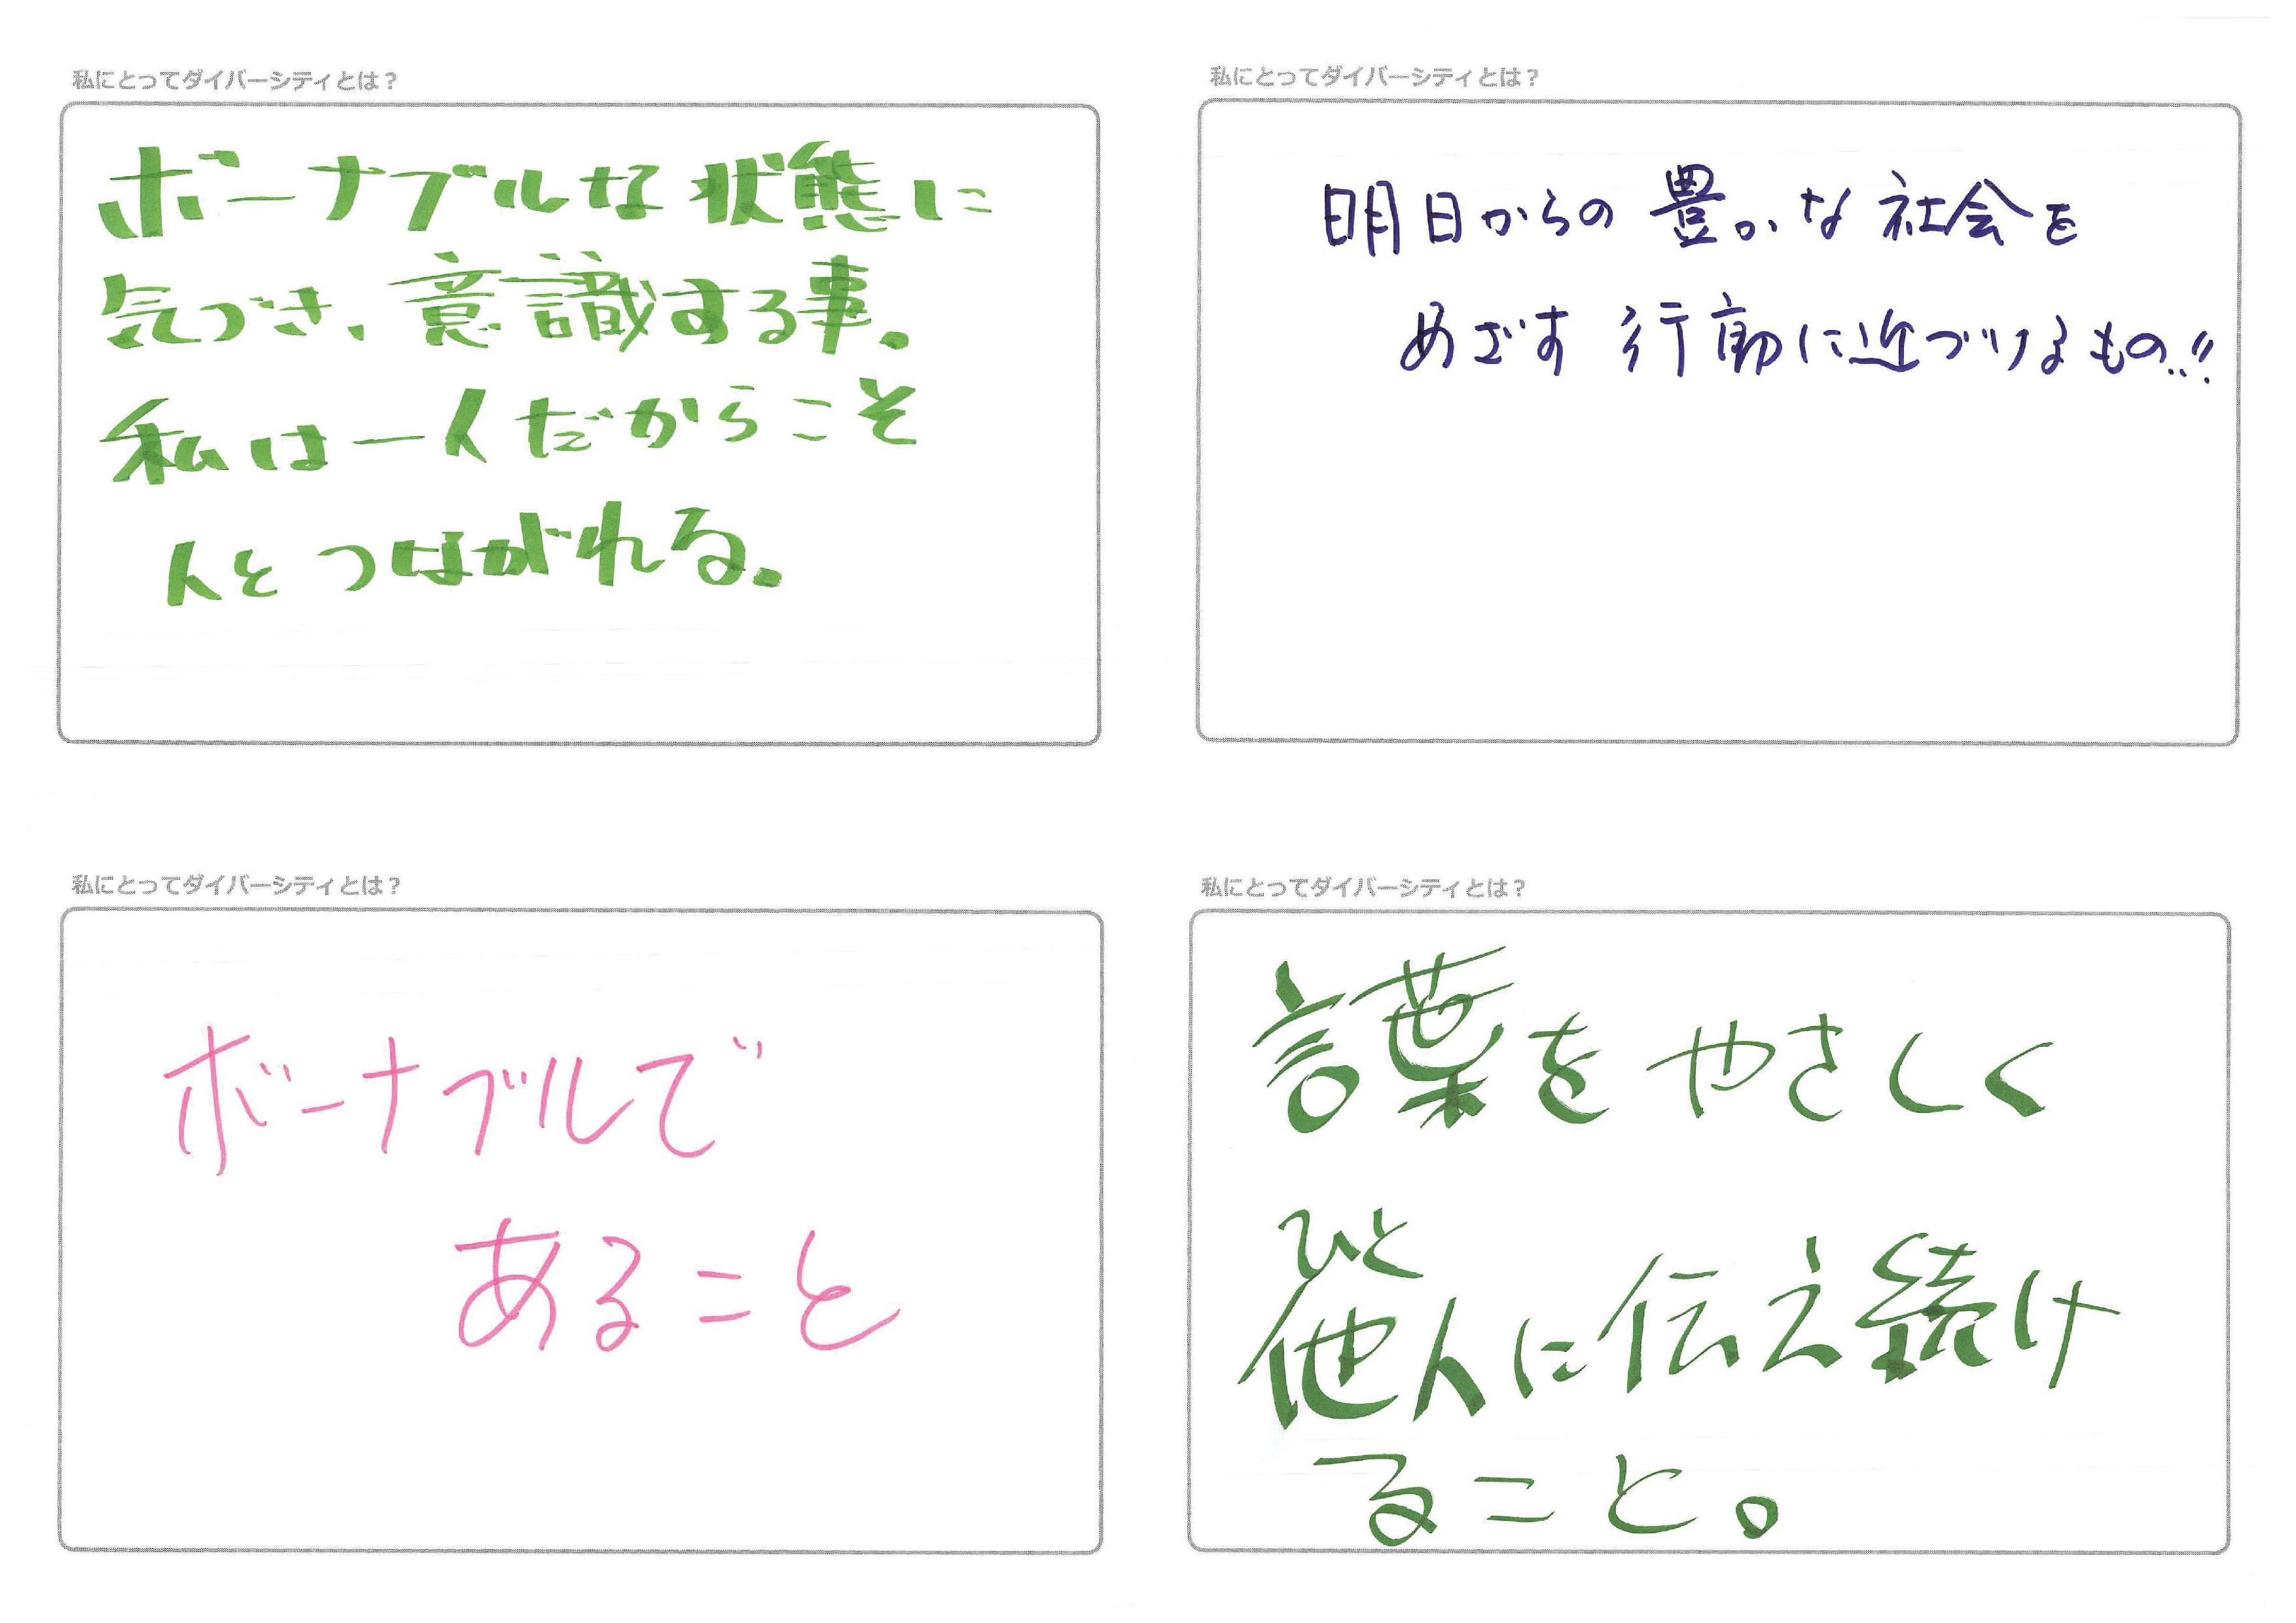 私にとってダイバーシティとは？
ボーナブルな状態に
気づき、意識する事。
私は一人だからこそ
人とつながれる。
私にとってダイバーシティとは？
明日からの豊かな社会を
めざす行動に近づけるもの..!!
私にとってダイバーシティとは？
ボーナブルで
あること
私にとってダイバーシティとは？
言葉をやさしく
ひと
他人に伝え続け
ること。